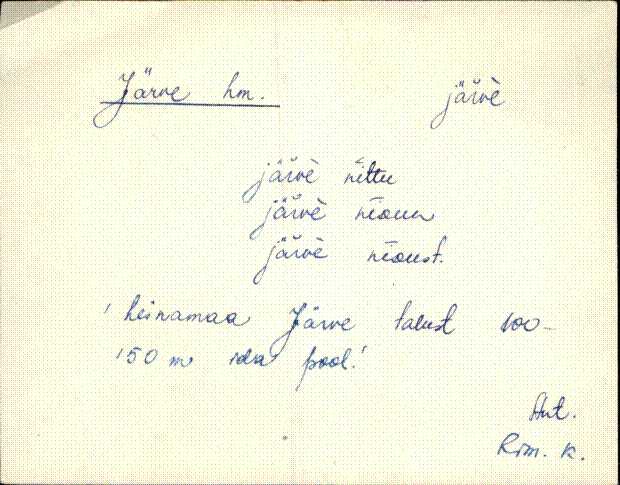 Järve hm. järvè
järvè nittu
järvè nioun
järvè nioust.
' heinamaa Järve talust 100-
150 m ida pool.'
Ant.
Rim. k.